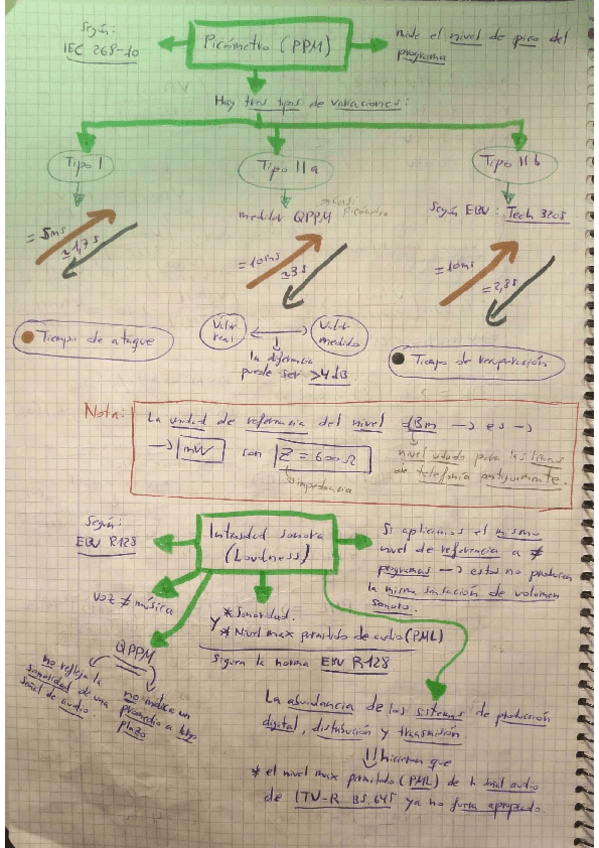 Según:
IEC 268-10
Picómetro (PPM)
mide el nivel de pico del
programa
Hay tres tipos de variaciones:
Tipo I
Tipo IIa
Tipo IIb
medidor QPPM
Casi
Picómetro
Según EBU: Tech 3205
= 5ms
≈1,7s
= 10ms
≈3s
= 10ms
= 2,8s
Tiempo de ataque
Valor
real
Valor
medido
la diferencia
puede ser >4dB
Tiempo de recuperación
Nota:
La unidad de referencia del nivel dBm → es →
→ 1mW con Z = 600Ω
impedancia
nivel usado para las líneas
de telefonía antiguamente.
Según:
EBU R128
Intensidad sonora
(Loudness)
Si aplicamos el mismo
nivel de referencia a ≠
programas → estos no producen
la misma sensación de volumen
sonoro.
Voz ≠ música
* Sonoridad.
y
* Nivel max permitido de audio (PML)
Siguen la norma EBU R-128
QPPM
no refleja la
sonoridad de una
señal de audio.
no indica un
promedio a largo
plazo
La abundancia de los sistemas de producción
digital, distribución y transmisión
hicieron que
* el nivel max permitido (PML) de la señal audio
de ITU-R BS.645 ya no fuera apropiado.